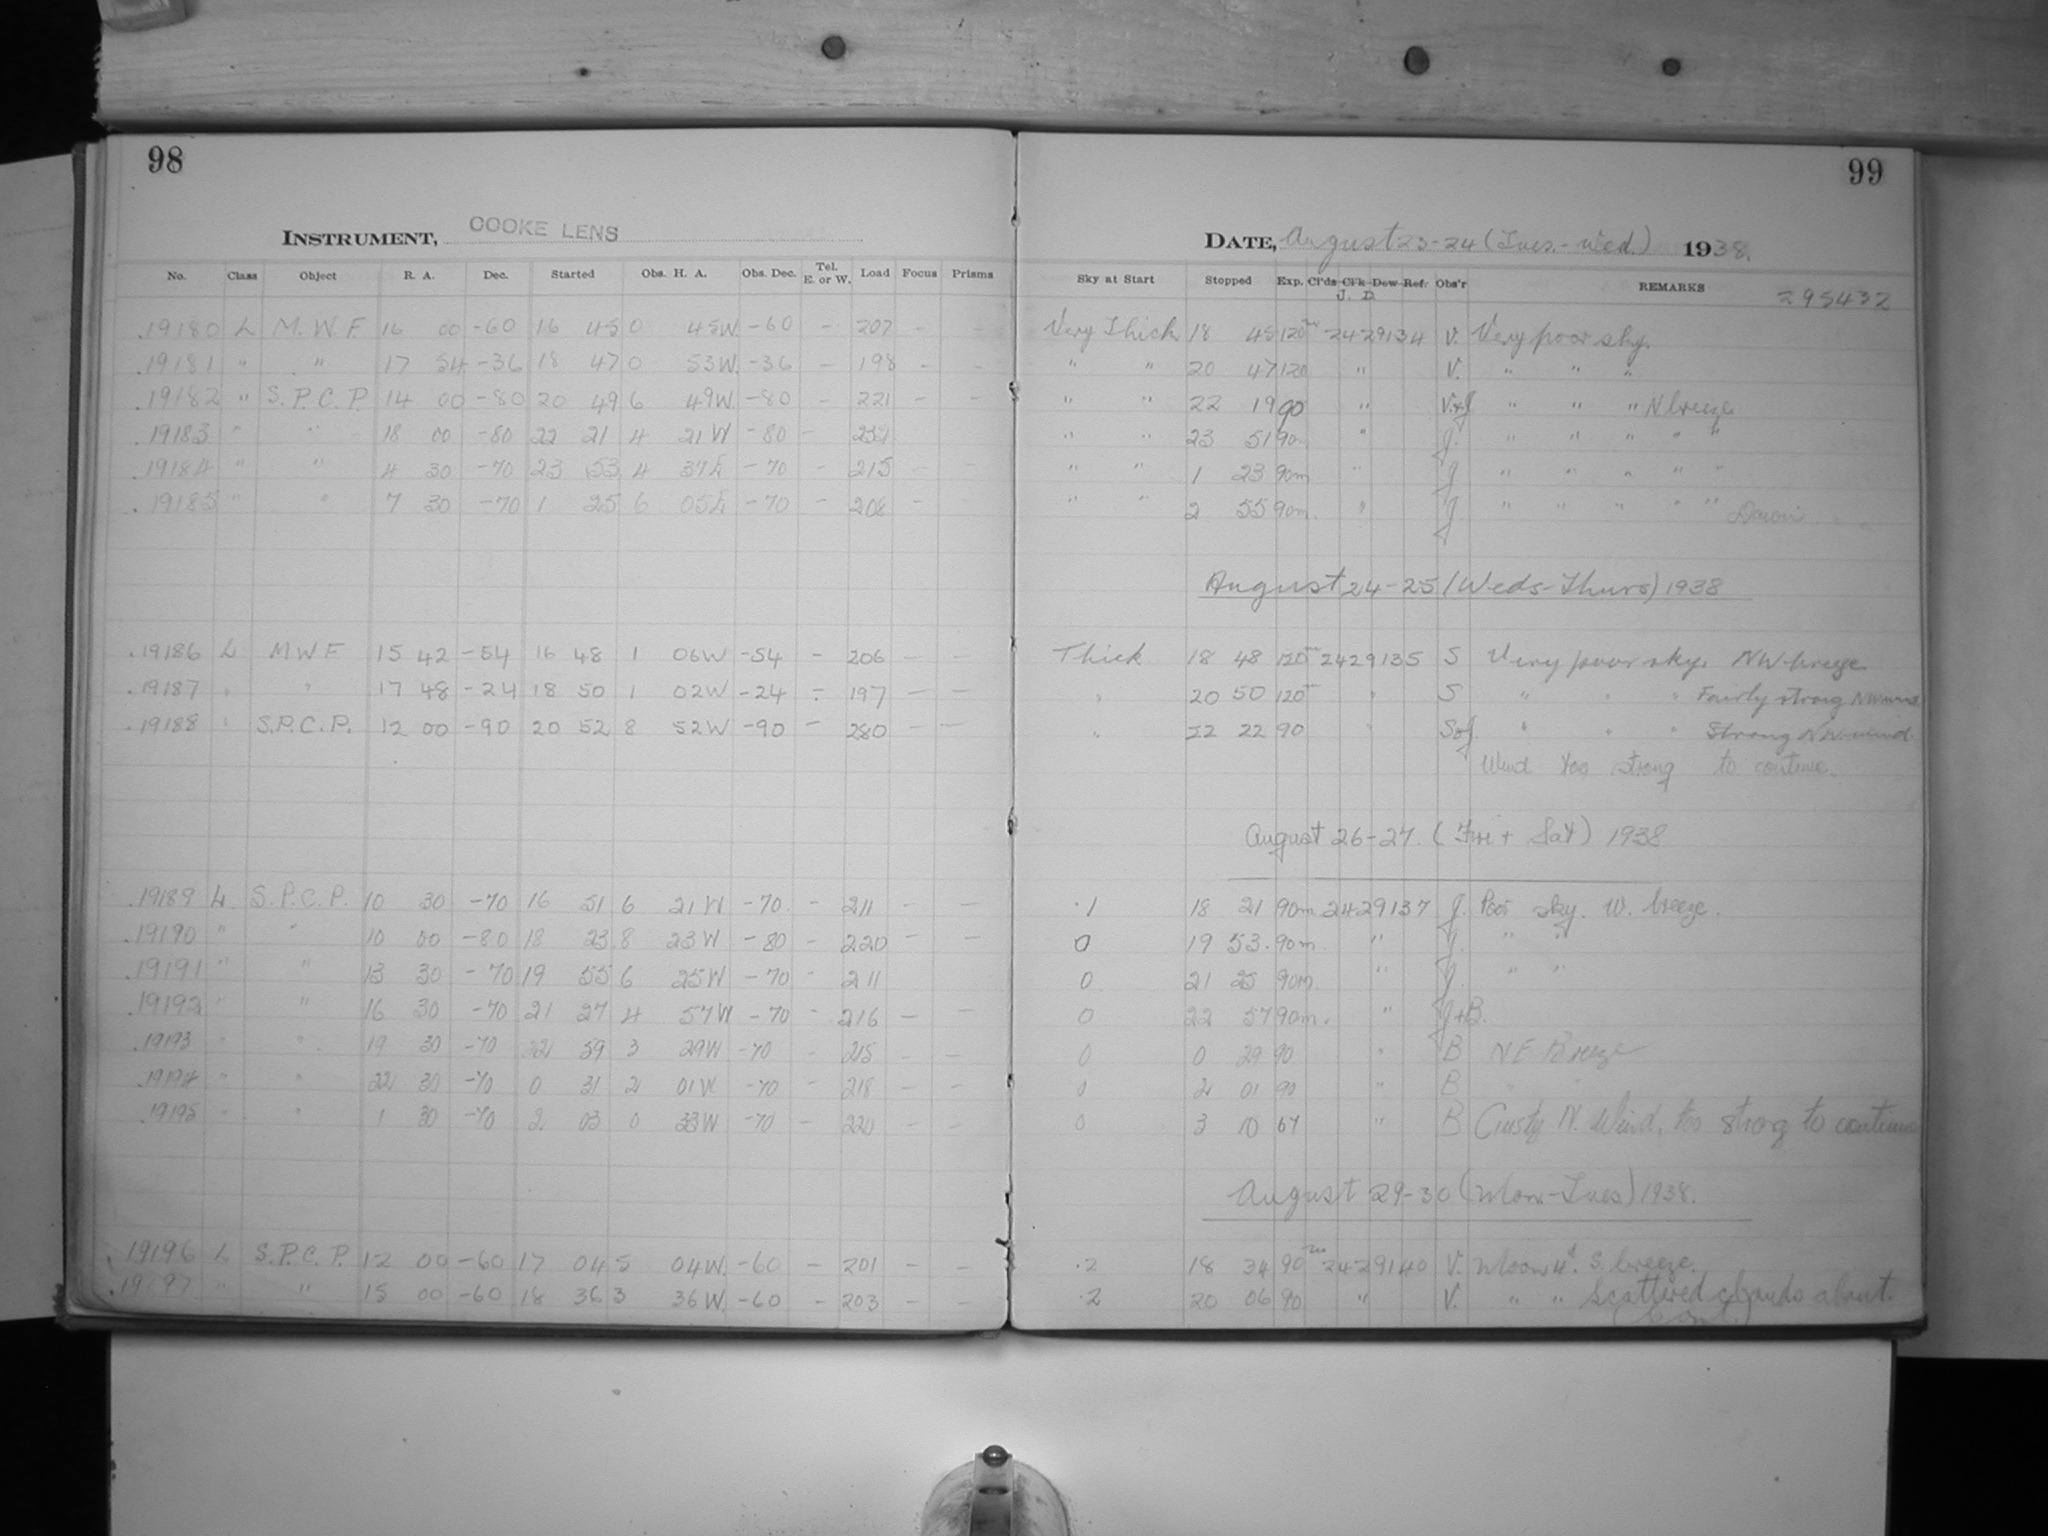 98
INSTRUMENT, COOKE LENS
No. Class Object R. A. Dec. Started Obs. H. A. Obs. Dec. Tel. E. or W. Load Focus Prisms
19180 L M.W.F. 16 00 -60 16 45 0 45W -60 - 207 - -
19181 " " 17 54 -36 18 47 0 53W. -36 - 198 - -
19182 " S.P.C.P. 14 00 -80 20 49 6 49W. -80 - 221 - -
19183 " " 18 00 -80 22 21 4 21W -80 - 232 - -
19184 " " 4 30 -70 23 53 4 37E -70 - 215 - -
19185 " " 7 30 -70 1 25 6 05E -70 - 208 - -
19186 L MWF 15 42 -54 16 48 1 06W -54 - 206 - -
19187 " " 17 48 -24 18 50 1 02W -24 - 197 - -
19188 " S.P.C.P. 12 00 -90 20 52 8 52W -90 - 280 - -
19189 L S.P.C.P. 10 30 -70 16 51 6 21W -70 - 211 - -
19190 " " 10 00 -80 18 23 8 23W -80 - 220 - -
19191 " " 13 30 -70 19 55 6 25W -70 - 211
19192 " " 16 30 -70 21 27 4 57W -70 - 216 - -
19193 " " 19 30 -70 22 59 3 29W -70 - 215 - -
19194 " " 22 30 -70 0 31 2 01W -70 - 218 - -
19195 " " 1 30 -70 2 03 0 33W -70 - 220 - -
19196 L S.P.C.P. 12 00 -60 17 04 5 04W. -60 - 201 - -
19197 " " 15 00 -60 18 36 3 36W. -60 - 203 - -
99
DATE, August 23-24 (Tues.-Wed.) 1938.
Sky at Start Stopped Exp. Cl'ds Cl'k Dew Ref. Obs'r REMARKS
J. D. 295432
Very Thick 18 45 120m 2429134 V. Very poor sky.
" " 20 47 120 " V. " " "
" " 22 19 90 " V.+J " " " N breeze
" " 23 51 90m " J. " " " " "
" " 1 23 90m " J " " " " "
" " 2 55 90m. " J " " " " " Dawn
August 24-25 (Weds-Thurs) 1938
Thick 18 48 120m 2429135 S Very poor sky. NW breeze
" 20 50 120m " S " " " Fairly strong NW wind
" 22 22 90 " S+J " " " Strong NW wind.
Wind too strong to continue.
August 26-27. (Fri + Sat) 1938
.1 18 21 90m 2429137 J. Poor sky. W. breeze.
0 19 53. 90m. " J. " "
0 21 25 90m " J. " "
0 22 57 90m. " J+B.
0 0 29 90 " B NE Breeze
0 2 01 90 " B " "
0 3 10 67 " B Gusty N. Wind. too strong to continue
August 29-30 (Mon.-Tues) 1938.
.2 18 34 90m 2429140 V. Moon 4d. S. breeze.
.2 20 06 90 " V. " " Scattered clouds about.
(Cont.)